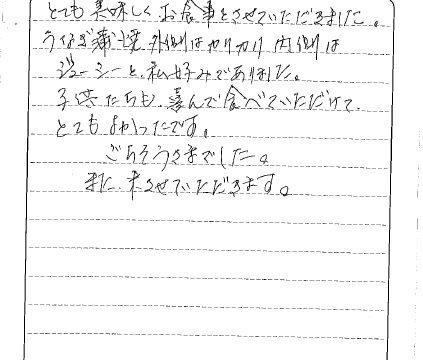 とても美味しくお食事をさせていただきました。
うなぎ蒲焼、外側はカリカリ内側は
ジューシーと、私好みでありました。
子供たちも、喜んで食べていただけて、
とてもよかったです。
ごちそうさまでした。
また、来させていただきます。